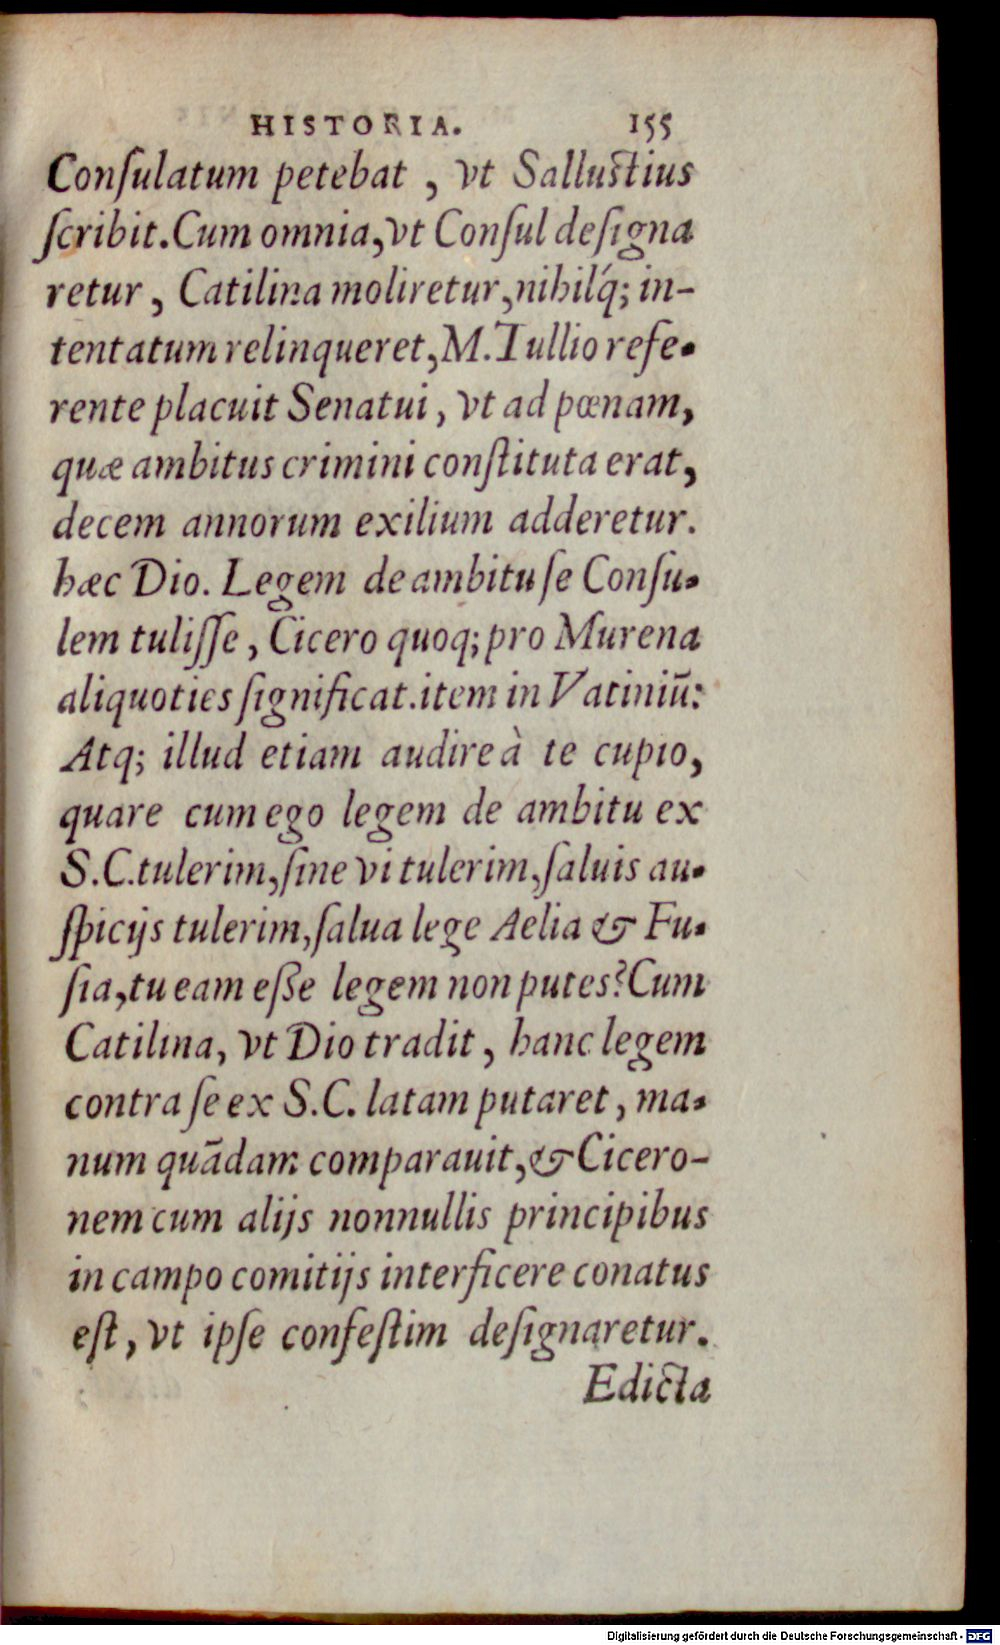 HISTORIA. 155
Conſulatum petebat , vt Salluſtius
ſcribit. Cum omnia, vt Conſul deſigna
retur , Catilina moliretur, nihilq́; in-
tentatum relinqueret, M. Tullio refe-
rente placuit Senatui , vt ad pœnam,
quæ ambitus crimini conſtituta erat,
decem annorum exilium adderetur.
hæc Dio. Legem de ambitu ſe Conſu-
lem tuliſſe , Cicero quoq; pro Murena
aliquoties ſignificat. item in Vatiniū:
Atq; illud etiam audire à te cupio,
quare cum ego legem de ambitu ex
S.C. tulerim, ſine vi tulerim, ſaluis au-
ſpicijs tulerim, ſalua lege Aelia & Fu-
ſia, tu eam eſſe legem non putes? Cum
Catilina, vt Dio tradit , hanc legem
contra ſe ex S.C. latam putaret , ma-
num quādam comparauit, & Cicero-
nem cum alijs nonnullis principibus
in campo comitijs interficere conatus
eſt , vt ipſe confeſtim deſignaretur.
Edicta
Digitalisierung gefördert durch die Deutsche Forschungsgemeinschaft - DFG